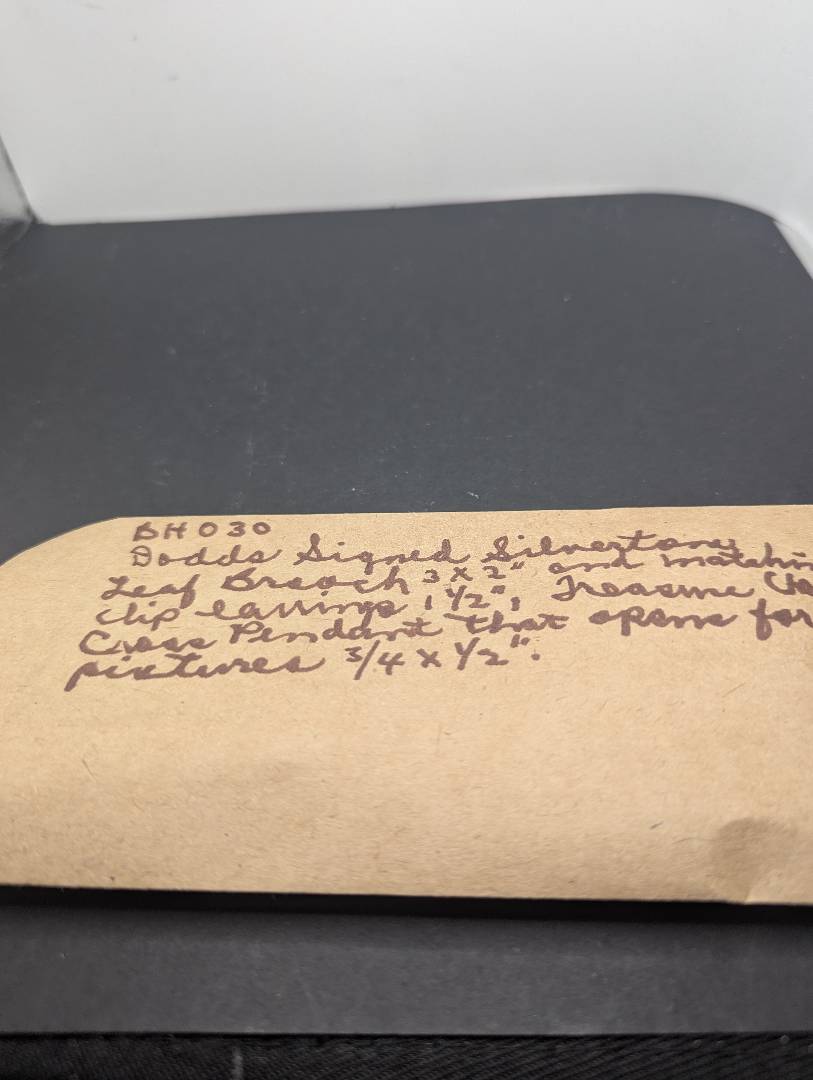 BH030
Dodds Signed Silvertone
Leaf Brooch 3 x 2" and matchin
clip earrings 1 1/2", Treasure
Cross Pendant that opens for
pictures 3/4 x 1/2".